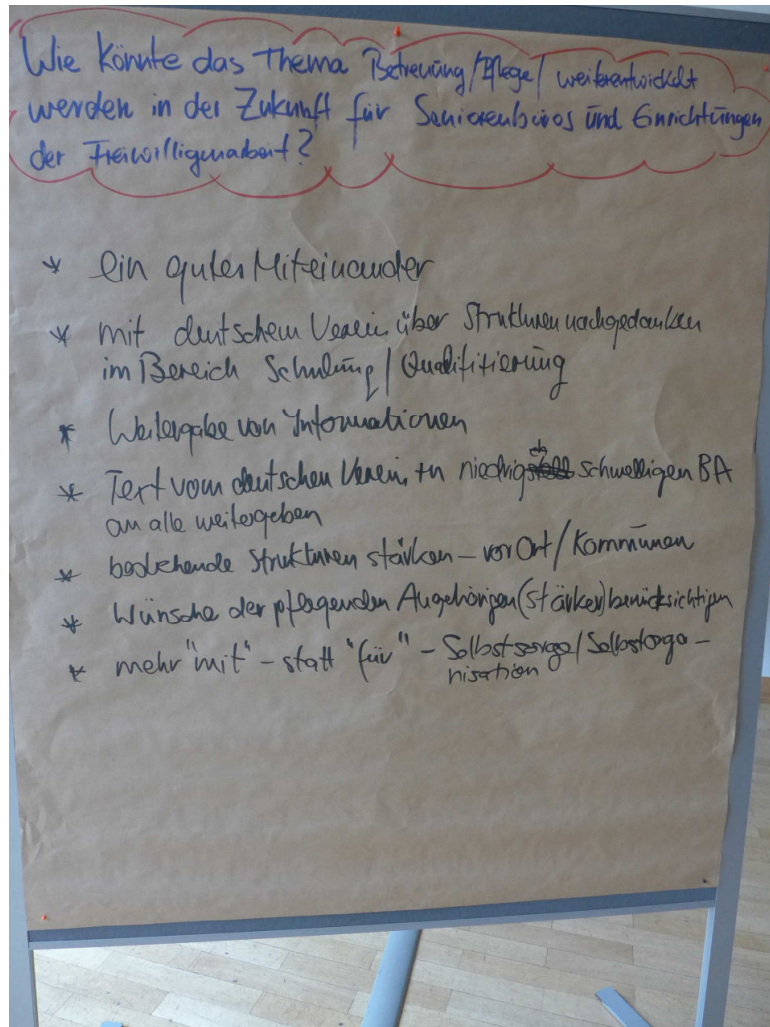 Wie könnte das Thema Betreuung/Pflege/ weiterentwickelt
werden in der Zukunft für Seniorenbüros und Einrichtungen
der Freiwilligenarbeit?
* ein gutes Miteinander
* mit deutschem Verein über Strukturen nachgedanken
im Bereich Schulung/Qualifizierung
* Weitergabe von Informationen
* Text vom deutschen Verein niedrigschwelligen BA
an alle weitergeben
* bestehende Strukturen stärken – vor Ort/Kommunen
* Wünsche der pflegenden Angehörigen (stärker) berücksichtigen
* mehr "mit" – statt "für" – Selbstsorge/Selbstorga-
nisation